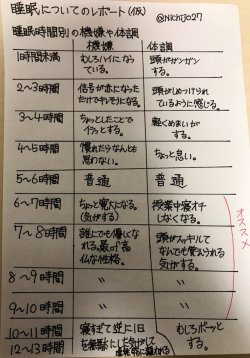 睡眠についてのレポート(仮)
@Nichijo27
睡眠時間別の機嫌や体調
機嫌 体調
1時間未満 むしろハイになっている。 頭がガンガンする。
2〜3時間 信号が赤になっただけでキレそうになる。 頭がしめつけられているように感じる。
3〜4時間 ちょっとしたことでイラっとする。 軽くめまいがする。
4〜5時間 慣れたらなんとも思わない。 ちょっと怠い。
5〜6時間 普通 普通
6〜7時間 ちょっと寛大になる。(気がする) 授業中寝オチしなくなる。
7〜8時間 誰にでも優しくなれる。最の高 仏な性格。 頭がスッキリしてなんでも覚えられる気がする。
8〜9時間 〃 〃
9〜10時間 〃 〃
オススメ
10〜11時間 寝すぎて逆に1日を無駄にした気がして
12〜13時間 むしろボーッとする。